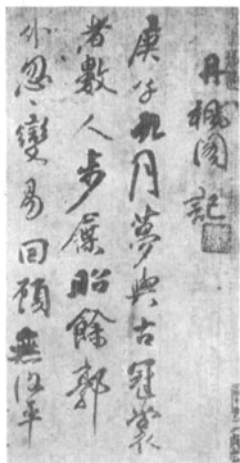 丹楓阁記
庚子九月夢與古冠裳
者數人步屧昭餘郭
外忽〻變易回顧無復平